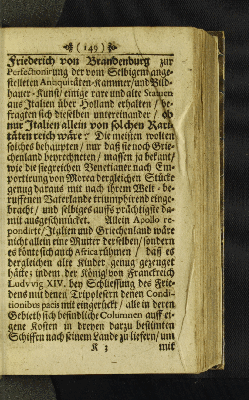 ( 149 )
Friederich von Brandenburg zur
Perfectionirung der vom Selbigen ange-
stelleten Antiquitäten-Kammer/und Bild-
hauer-Kunst/ einige rare und alte Statuen
aus Italien über Holland erhalten / be-
fragten sich dieselben untereinander / ob
nur Italien allein von solchen Rari-
täten reich wäre? Die meisten wolten
solches behaupten / nur daß sie noch Grie-
chenland beyrechneten / massen ja bekant/
wie die siegreichen Venetianer nach Em-
portirung von Morea dergleichen Stücke
genug daraus mit nach ihrem Welt-be-
ruffenen Vaterlande triumphirend einge-
bracht / und selbiges auffs prächtigste da-
mit ausgeschmücket. Allein Apollo re-
pondirte/Italien und Griechenland wäre
nicht allein eine Mutter derselben/sondern
es könte sich auch Africa rühmen / daß es
dergleichen alte Kinder genug gezeuget
hätte; indem der König von Franckreich
Ludvvig XIV. bey Schliessung des Frie-
dens mit denen Tripolesern denen Condi-
tionibus pacis mit eingerückt / alle in deren
Gebieth sich befindliche Columnen auff ei-
gene Kosten in dreyen darzu bestimten
Schiffen nach seinem Lande zu liefern/ um
K 3 mit